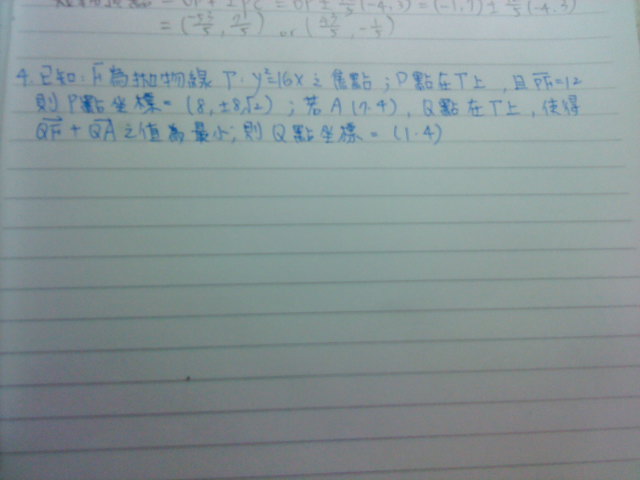 = (-53/5, 21/5) or (43/5, -1/5)
4. 已知:F為拋物線 Γ: y²=16x 之焦點;P點在Γ上,且 PF=12
則P點坐標=(8,±8√2);若A(7.4),Q點在Γ上,使得
QF+QA之值為最小;則Q點坐標=(1.4)